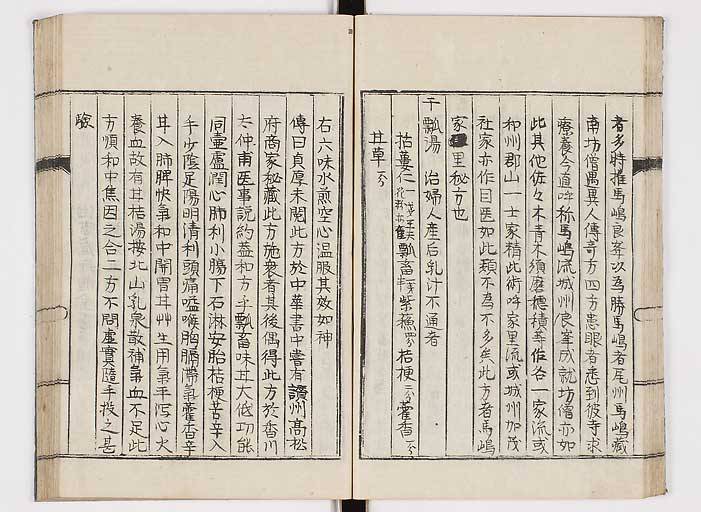 者多時推馬嶋良峯次為勝馬嶋者尾州馬嶋藏
南坊僧遇異人傳奇方四方患眼者悉到彼寺求
療養今直呼称馬嶋流城州良峯成就坊僧亦如
此其他佐々木青木須磨穂積等在各一家流或
和州郡山一士家精此術呼家里流或城州加茂
社家亦作目医如此類不為不多矣此方者馬嶋
家里秘方也
干瓢湯 治婦人産后乳汁不通者
括蔞仁 瓢畜 紫蘓 桔梗二分 藿香一分
甘草一分
右六味水煎空心温服其效如神
傳曰貞厚未閲此方於中華書中嘗有讃州髙松
府商家秘藏此方施衆者其後偶得此方於香川
太仲甫医事説約蓋和方乎瓢畜味甘大低功能
同壷盧潤心肺利小膓下石淋安胎桔梗苦辛入
手少陰足陽明清利頭痛嗌喉胸膈滞氣藿香辛
甘入肺脾快氣和中開胃甘艸生用氣平泻心火
養血故有甘桔湯按北山乳泉散補氣血不足此
方順和中焦因之合二方不問虚實隨手投之甚
験